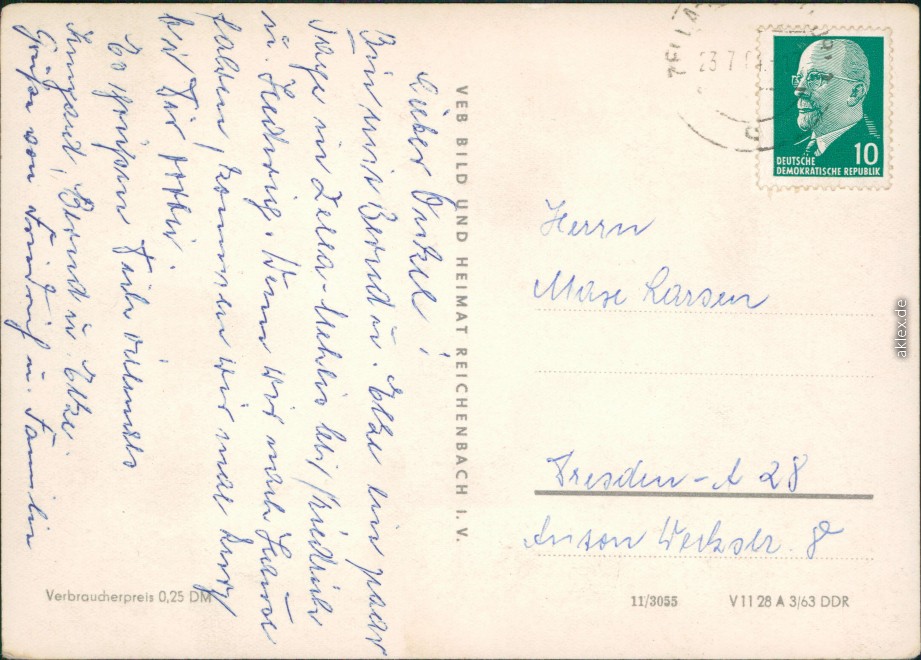 Lieber Onkel!
Bin mit Bernd u. Elke ein paar
Tage in Zella-Mehlis bei Friedrich
u. Hedwig. Wenn wir nach Hause
fahren, kommen wir mal kurz
bei Dir vorbei.
Es grüßen Dich vielmals
Irmgard, Bernd u. Elke.
Grüße von Friedrich u. Familie
VEB BILD UND HEIMAT REICHENBACH I. V.
Verbraucherpreis 0,25 DM
23.7.64
DEUTSCHE
DEMOKRATISCHE REPUBLIK
10
Herrn
Max Larsen
Dresden-A 28
Anton Weckstr. 8
11/3055
V 11 28 A 3/63 DDR
aklex.de